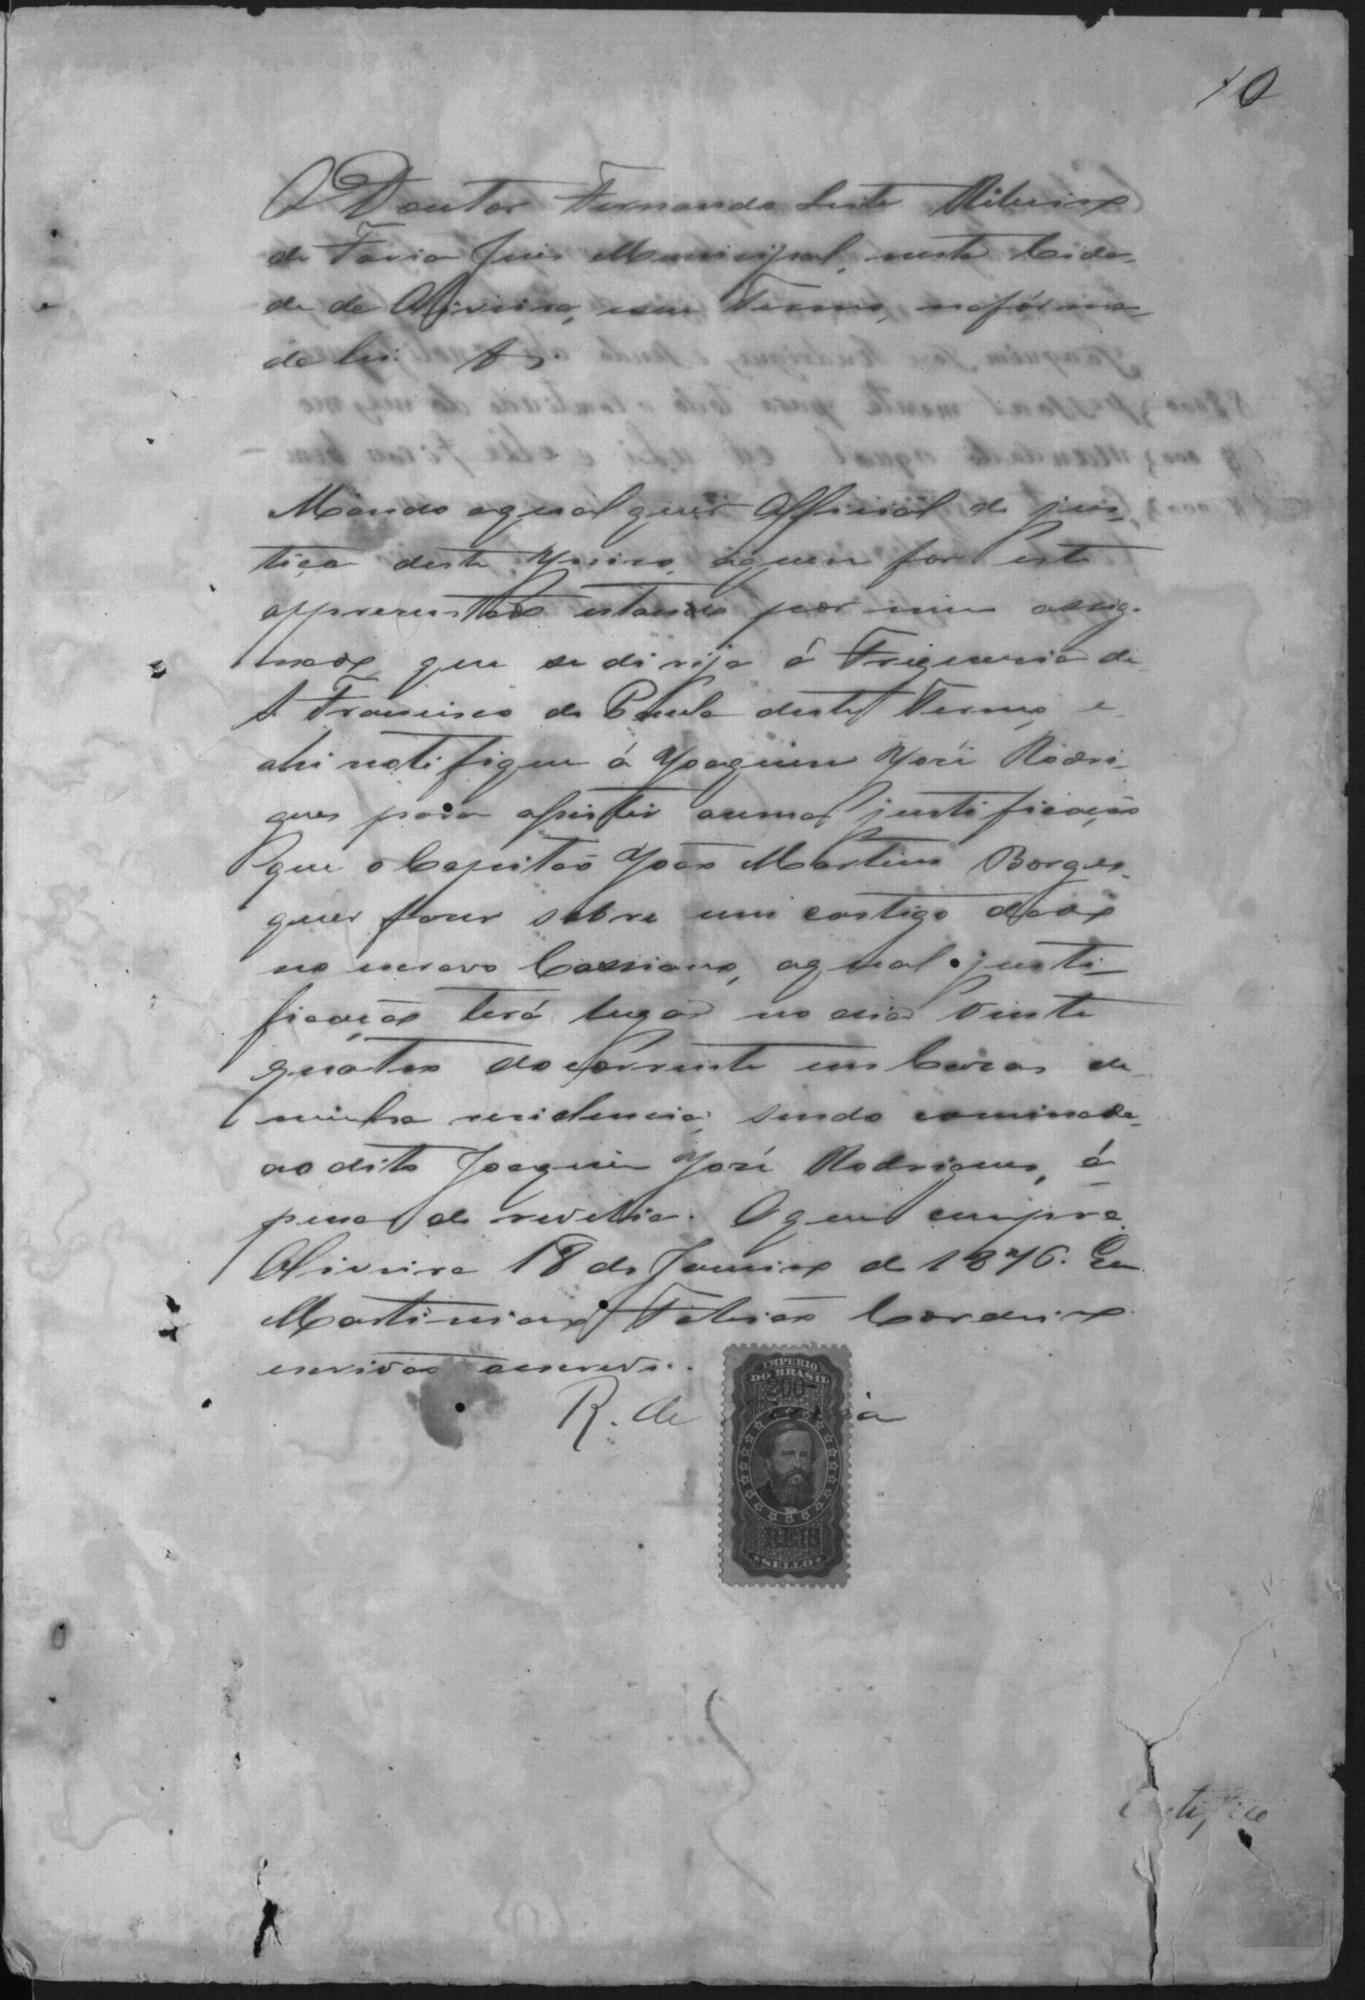 10
O Doutor Fernando Leite Ribeiro
de Faria Juis Municipal, nesta Cida-
de de Oliveira, e seu Termo, na fórma
da lei &
Mando a qualquer Official de jus-
tiça deste Juiso, a quem for este
appresentado estando por mim assig-
nado, que se dirija á Freguesia de
S. Francisco de Paula deste Termo, e
ahi notifique á Joaquim José Rodri-
gues para assistir a uma justificação
que o Capitão João Martins Borges
quer faser sobre um castigo dado
no escravo Cassiano, a qual justi-
ficação terá lugar no dia vinte
quatro do corrente em Casa de
minha residencia, sendo cominada
ao dito Joaquim José Rodrigues, á
pena de revelia. O que cumpra.
Oliveira 18 de Janeiro de 1876. Eu
Martiniano Cordeiro
escrivão a escrevi.
R. de
IMPERIO
DO BRASIL
200
REIS
SELLO
Certifico